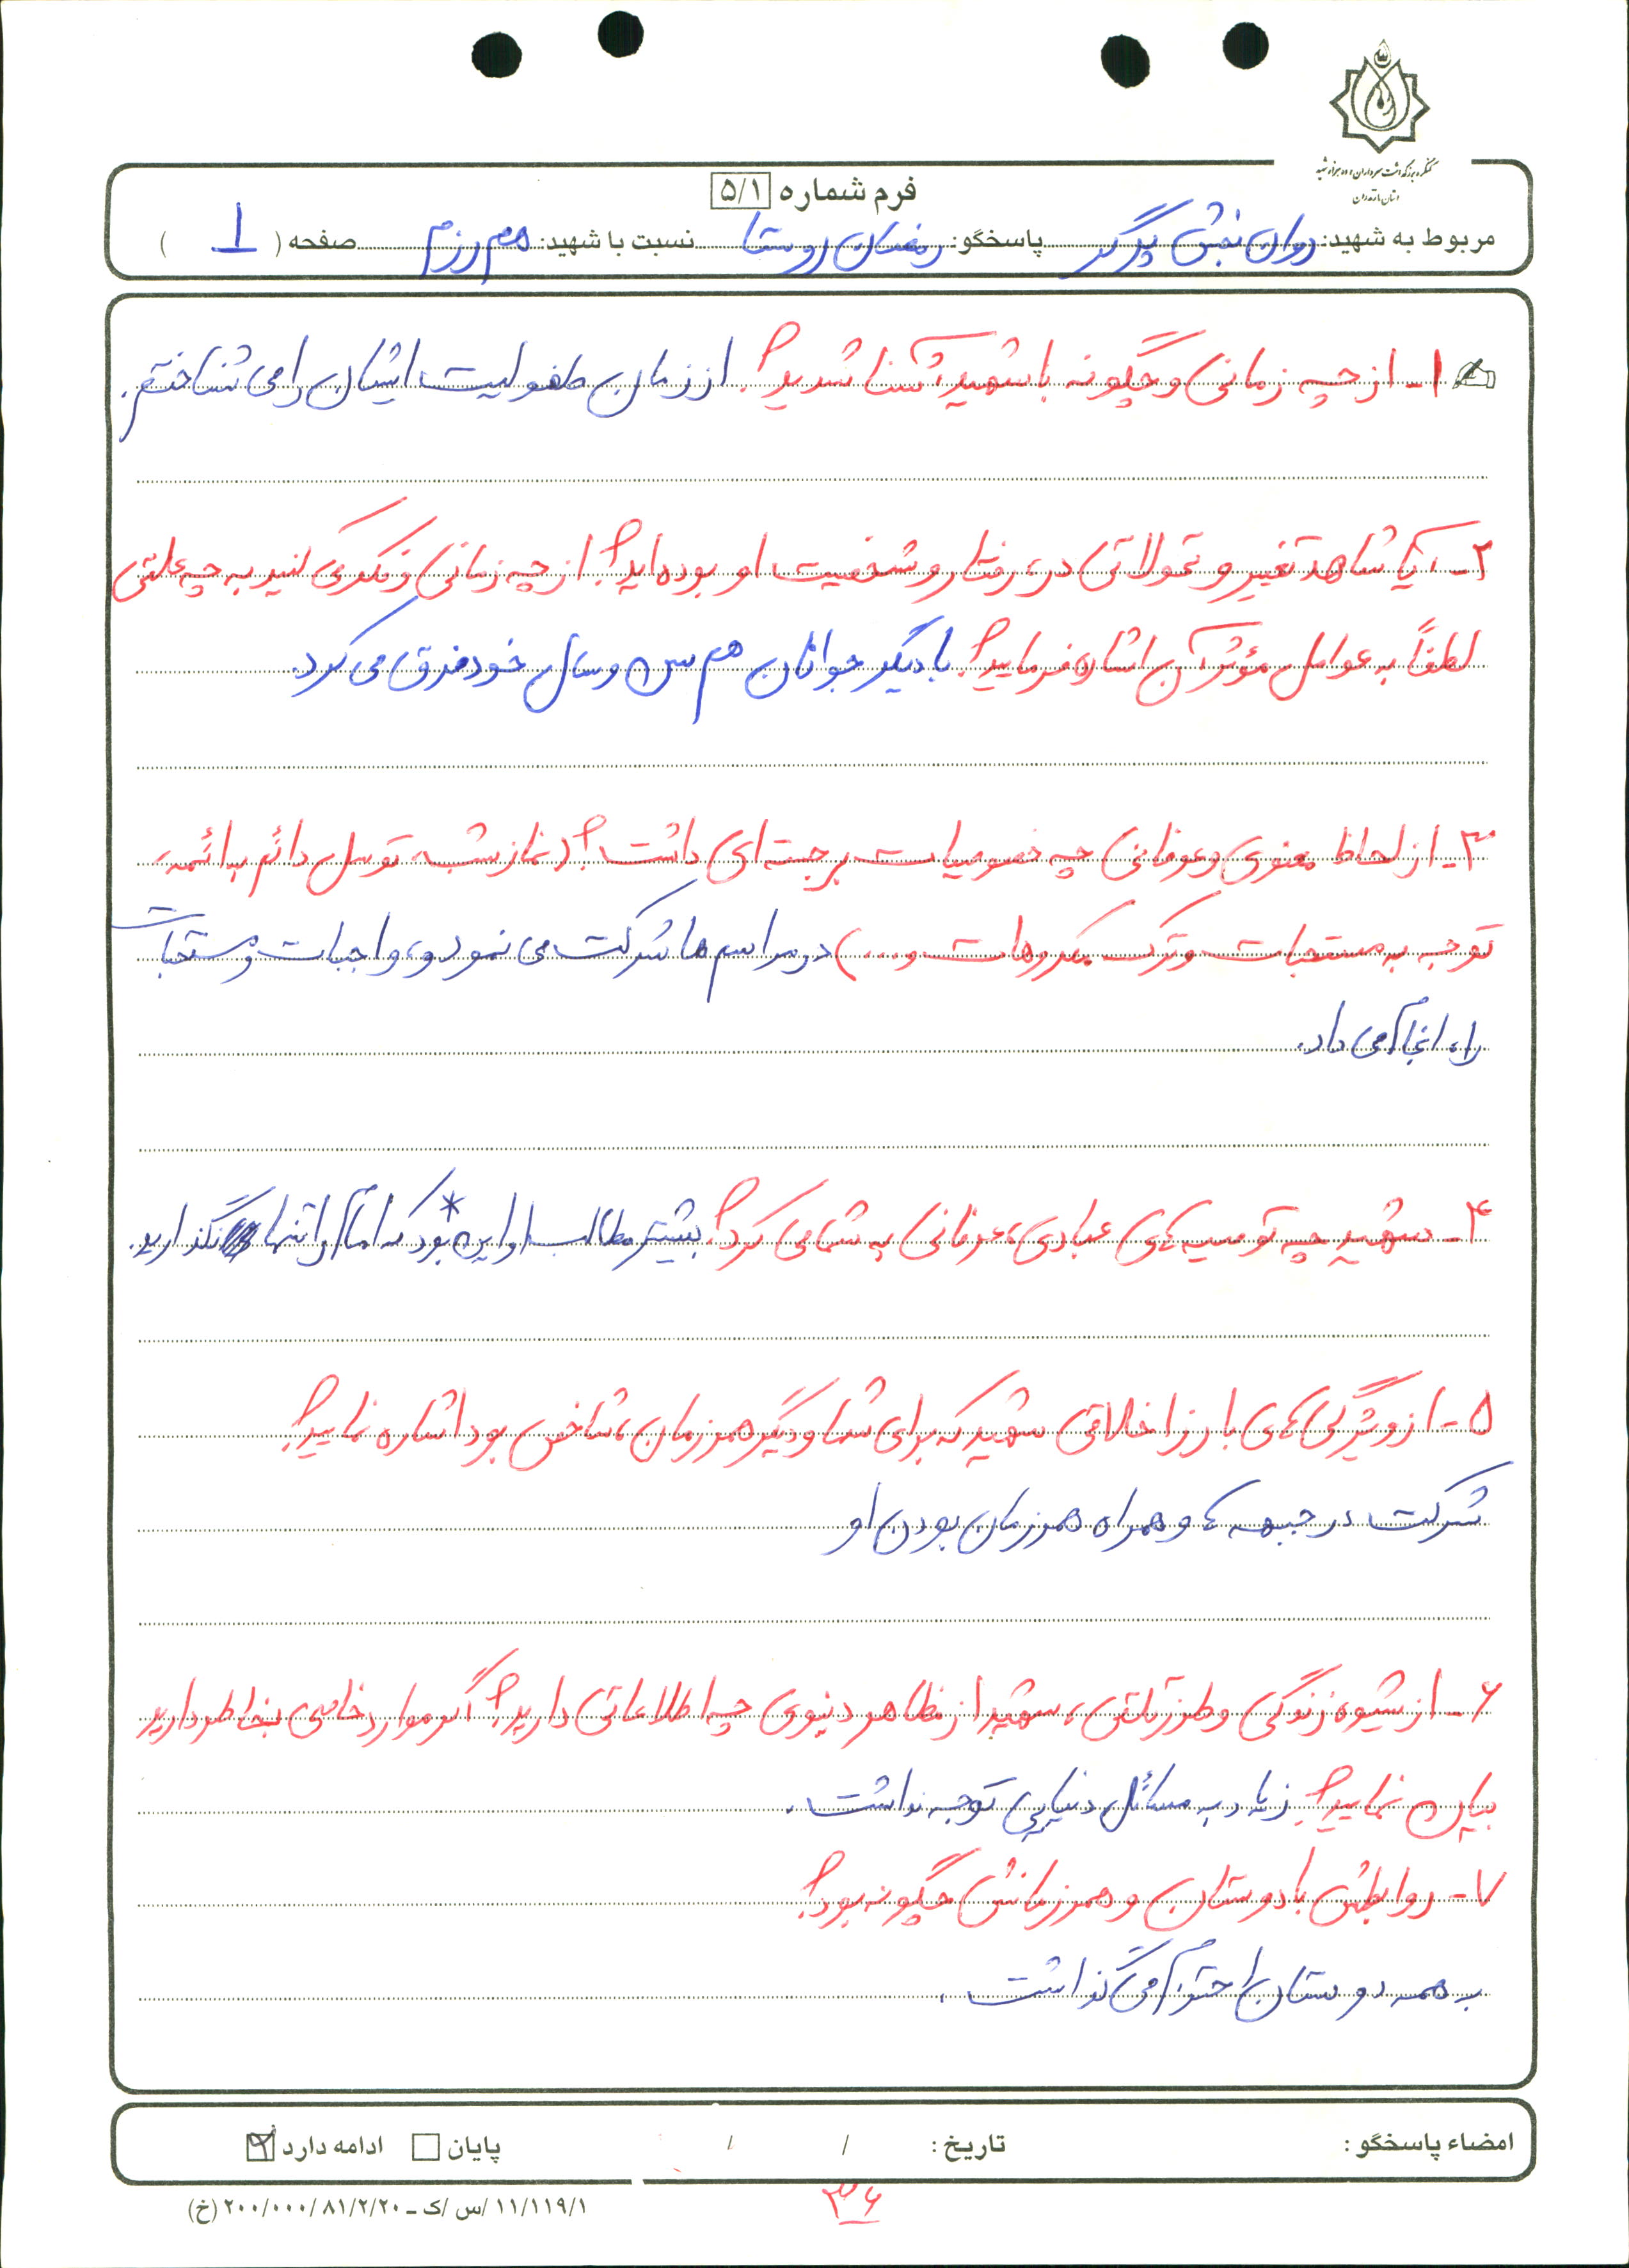 کنگره بزرگداشت سرداران و ده هزار شهید
استان مازندران
فرم شماره ۵/۱
مربوط به شهید: روان بخش پاسخگو: رمضان روستا نسبت با شهید: هم رزم صفحه ( 1 )
۱- از چه زمانی و چگونه با شهید آشنا شدید؟ از زمان طفولیت ایشان را می شناختم.
۲- آیا شاهد تغییر و تحولاتی در رفتار و شخصیت او بوده اید؟ از چه زمانی و فکر می کنید به چه علتی
لطفاً به عوامل مؤثر آن اشاره فرمایید؟ با دیگر جوانان هم سن و سال خود فرق می کرد.
۳- از لحاظ معنوی و عرفانی چه خصوصیات برجسته ای داشت؟ (نماز شب، توسل دائم به ائمه،
توجه به مستحبات و ترک مکروهات و ...) در مراسم ها شرکت می نمود و واجبات و مستحبات
را انجام می داد.
۴- شهید چه توصیه های عبادی، عرفانی به شما می کرد؟ بیشتر مطالب او این * بود که امام را تنها نگذارید.
۵- از ویژگی های بارز اخلاقی شهید که برای شما و دیگر همرزمان، شاخص بود اشاره نمایید؟
شرکت در جبهه ها و همراه همرزمان بودن او
۶- از شیوه زندگی و طرز تلقی، شهید از مظاهر دنیوی چه اطلاعاتی دارید؟ اگر موارد خاصی بخاطر دارید
بیان نمایید؟ زیاد به مسائل دنیایی توجه نداشت.
۷- روابطش با دوستان و همرزمانش چگونه بود؟
به همه دوستان احترام می گذاشت.
امضاء پاسخگو : تاریخ : / / پایان ادامه دارد
۳۶
۱۱/۱۱۹/۱ /س /ک ـ ۲۰۰/۰۰۰/۸۱/۲/۲۰ (خ)